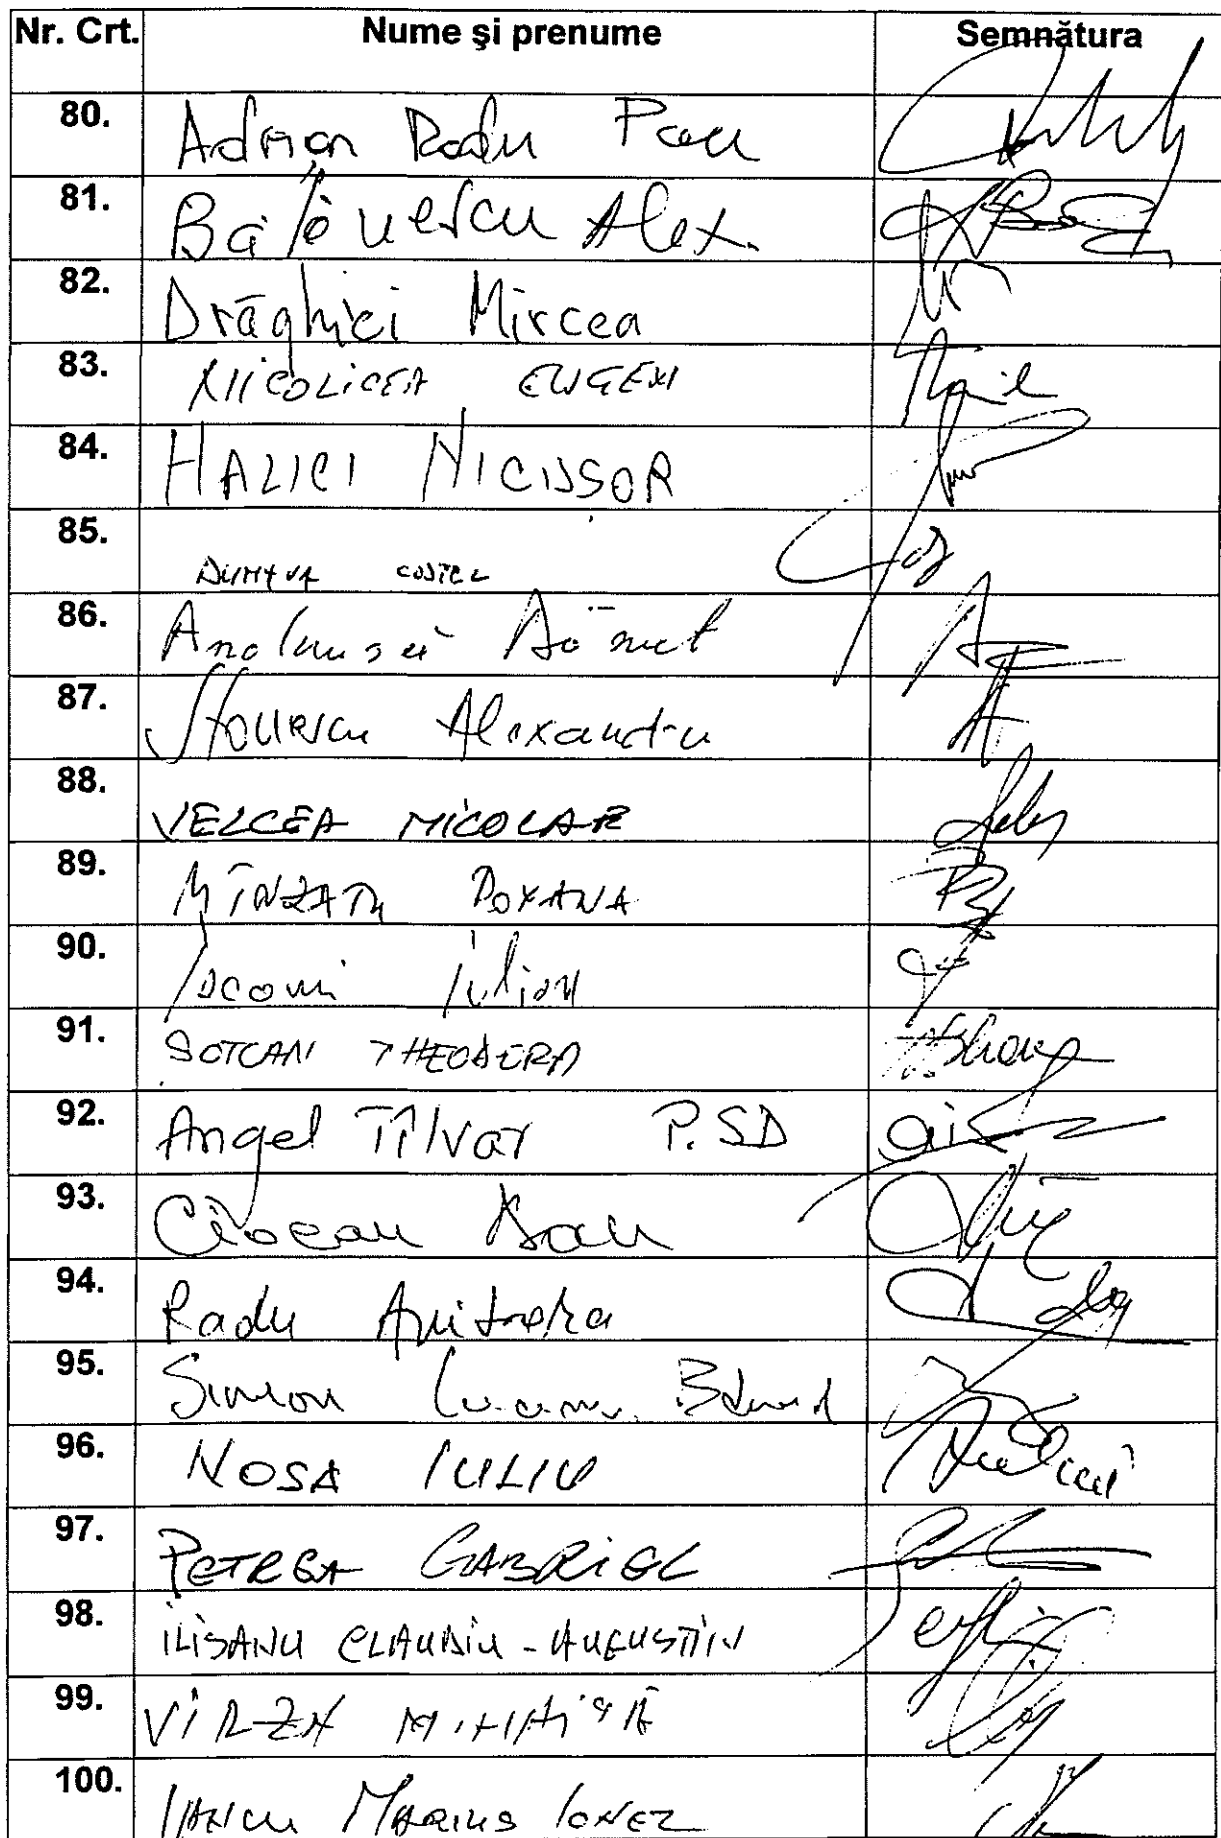 Nr. Crt. Nume şi prenume Semnătura
80. Adrian Radu
81. Bălănescu Alex.
82. Drăghici Mircea
83. NICOLICEA EUGEN
84. HALICI NICUSSOR
85. COSTEL
86. Andrusei Dănuț
87. Stanescu Alexandru
88. VELCEA NICOLAE
89. MÎNZATU ROXANA
90. Iacomi Iulian
91. SOTCAN THEODORA
92. Angel Tîlvar P.SD
93. Ciocan Dan
94. Radu
95. Simion
96. NOSA IULIU
97. PETREA GABRIEL
98. ILISANU CLAUDIU - AUGUSTIN
99. VIRZA MIHAIȚĂ
100. IANCU MARIUS IONEL